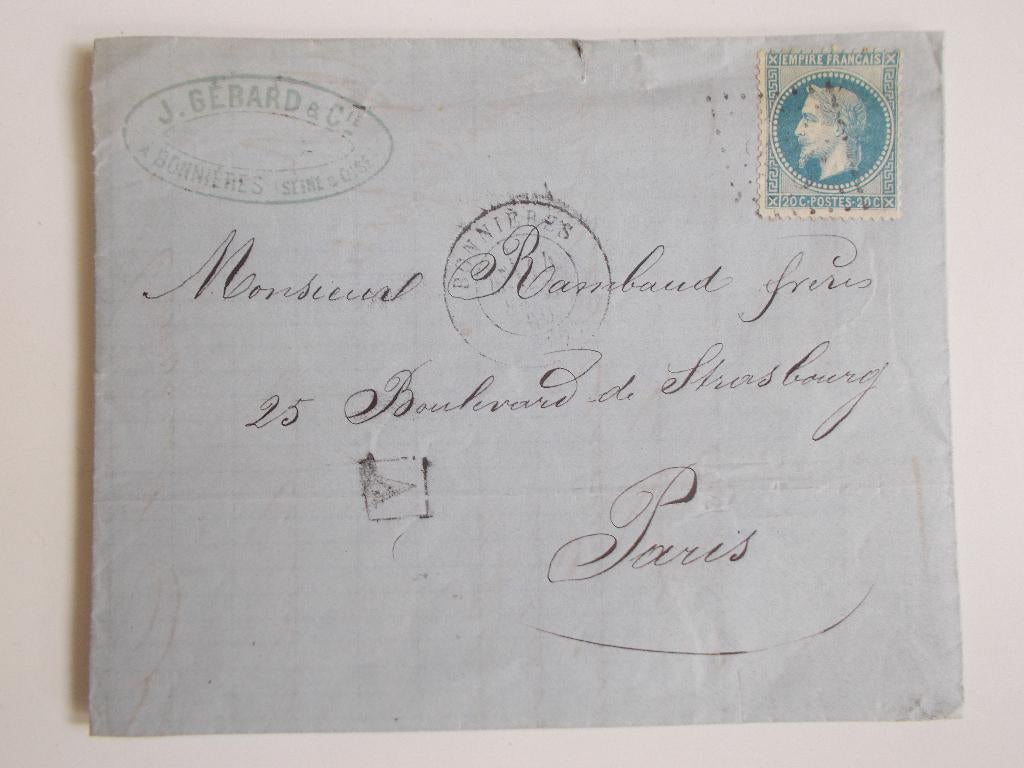 J. GÉRARD & CIE
A BONNIÈRES (SEINE & OISE)
EMPIRE FRANÇAIS
20C-POSTES-20C
BONNIÈRES
Monsieur Rambaud frères
25 Boulevard de Strasbourg
A
Paris